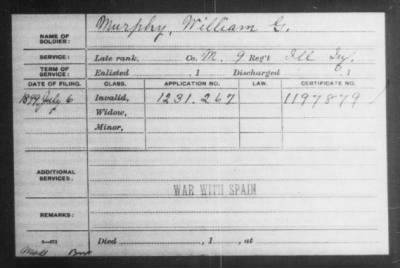 NAME OF SOLDIER: Murphy, William G.
SERVICE: Late rank, Co. M. 9 Reg't Ill Inf.
TERM OF SERVICE: Enlisted , 1 Discharged , 1
DATE OF FILING. CLASS. APPLICATION NO. LAW. CERTIFICATE NO.
1899 July 6 Invalid, 1231.267 1197879
Widow,
Minor,
ADDITIONAL SERVICES:
WAR WITH SPAIN
REMARKS:
Died , 1 , at